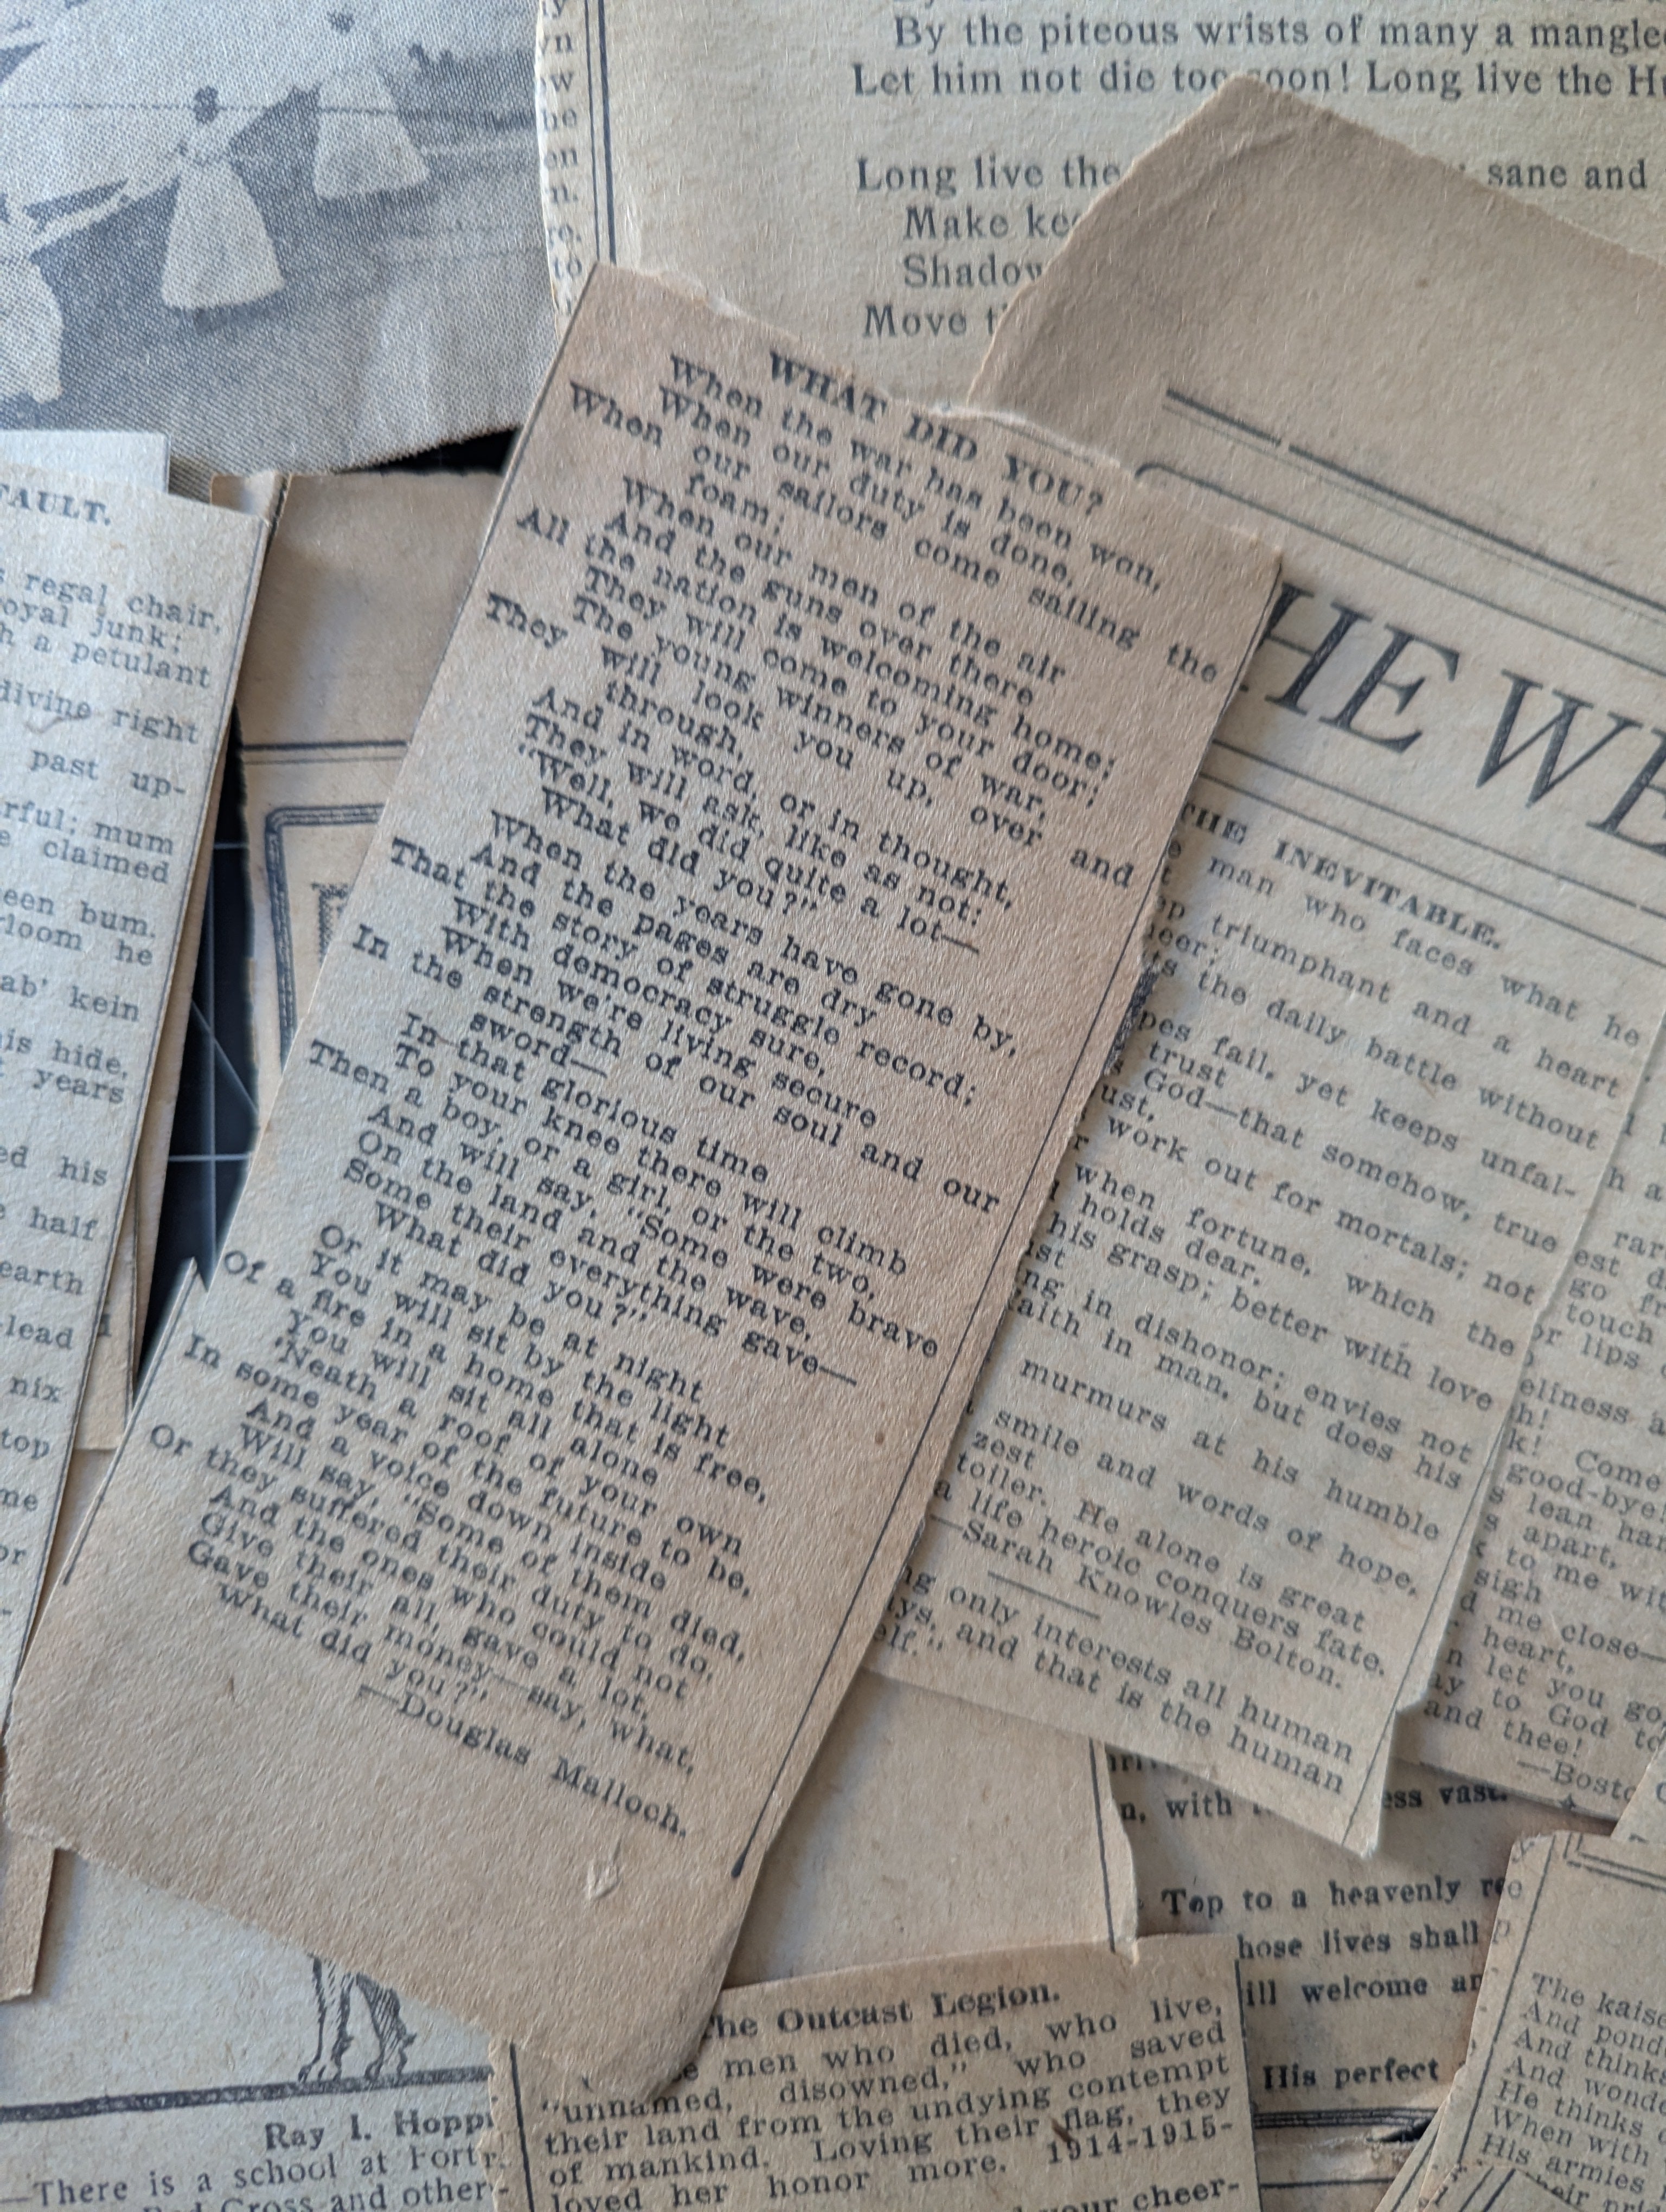 By the piteous wrists of many a mangle
Let him not die too soon! Long live the
Long live the
sane and
Make
Move
WHAT DID YOU?
When the war has been won,
When our duty is done,
When our sailors come sailing the
foam;
When our men of the air
And the guns over there
All the nation is welcoming home;
They will come to your door;
The young winners of war,
They will look you up, over and
through,
And in word, or in thought,
They will ask, like as not:
"Well, we did quite a lot—
What did you?"
When the years have gone by,
And the pages are dry
That the story of struggle record;
With democracy sure,
When we're living secure
In the strength of our soul and our
sword—
In that glorious time
To your knee there will climb
Then a boy, or a girl, or the two,
And will say, "Some were brave
On the land and the wave,
Some their everything gave—
What did you?"
Or it may be at night
You will sit by the light
Of a fire in a home that is free,
You will sit all alone
'Neath a roof of your own
In some year of the future to be,
And a voice down inside
Will say, "Some of them died,
Or they suffered their duty to do,
And the ones who could not
Give their all, gave a lot,
Gave their money—say, what,
What did you?"
—Douglas Malloch.
FAULT.
regal chair,
royal junk;
a petulant
divine right
past up-
mum
claimed
bum.
he
kein
his hide,
years
ed his
half
earth
lead
nix
top
HE WE
THE INEVITABLE.
man who faces what he
triumphant and a heart
the daily battle without
fail, yet keeps unfal-
trust
God—that somehow, true
work out for mortals; not
when fortune, which the
holds dear,
his grasp; better with love
in dishonor; envies not
faith in man, but does his
murmurs at his humble
smile and words of hope,
zest
toiler. He alone is great
a life heroic conquers fate.
—Sarah Knowles Bolton.
only interests all human
and that is the human
self."
touch
lips
Come
good-bye!
lean
apart,
to me
sigh
me close—
heart,
let you go,
to God
and thee!
with
vast.
to a heavenly
lives shall
will welcome
His perfect
The Outcast Legion.
men who died, who live,
"unnamed, disowned," who saved
their land from the undying contempt
of mankind. Loving their flag, they
loved her honor more. 1914-1915-
your cheer-
Ray I.
—There is a school at
Cross and other
The
And
And
And
He thinks
When with
His armies